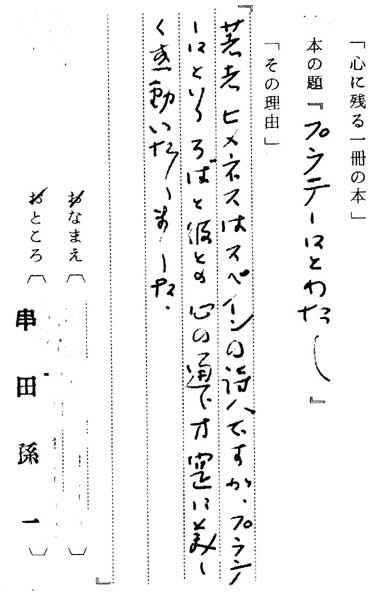 「心に残る一冊の本」
本の題『プラテーロとわたし』
「その理由」
著者ヒメネスはスペインの詩人ですが、プラテ
ーロというろばと彼との心の通じ方が実に美し
く感動いたしました。
おなまえ〔
おところ〔串田孫一〕
』